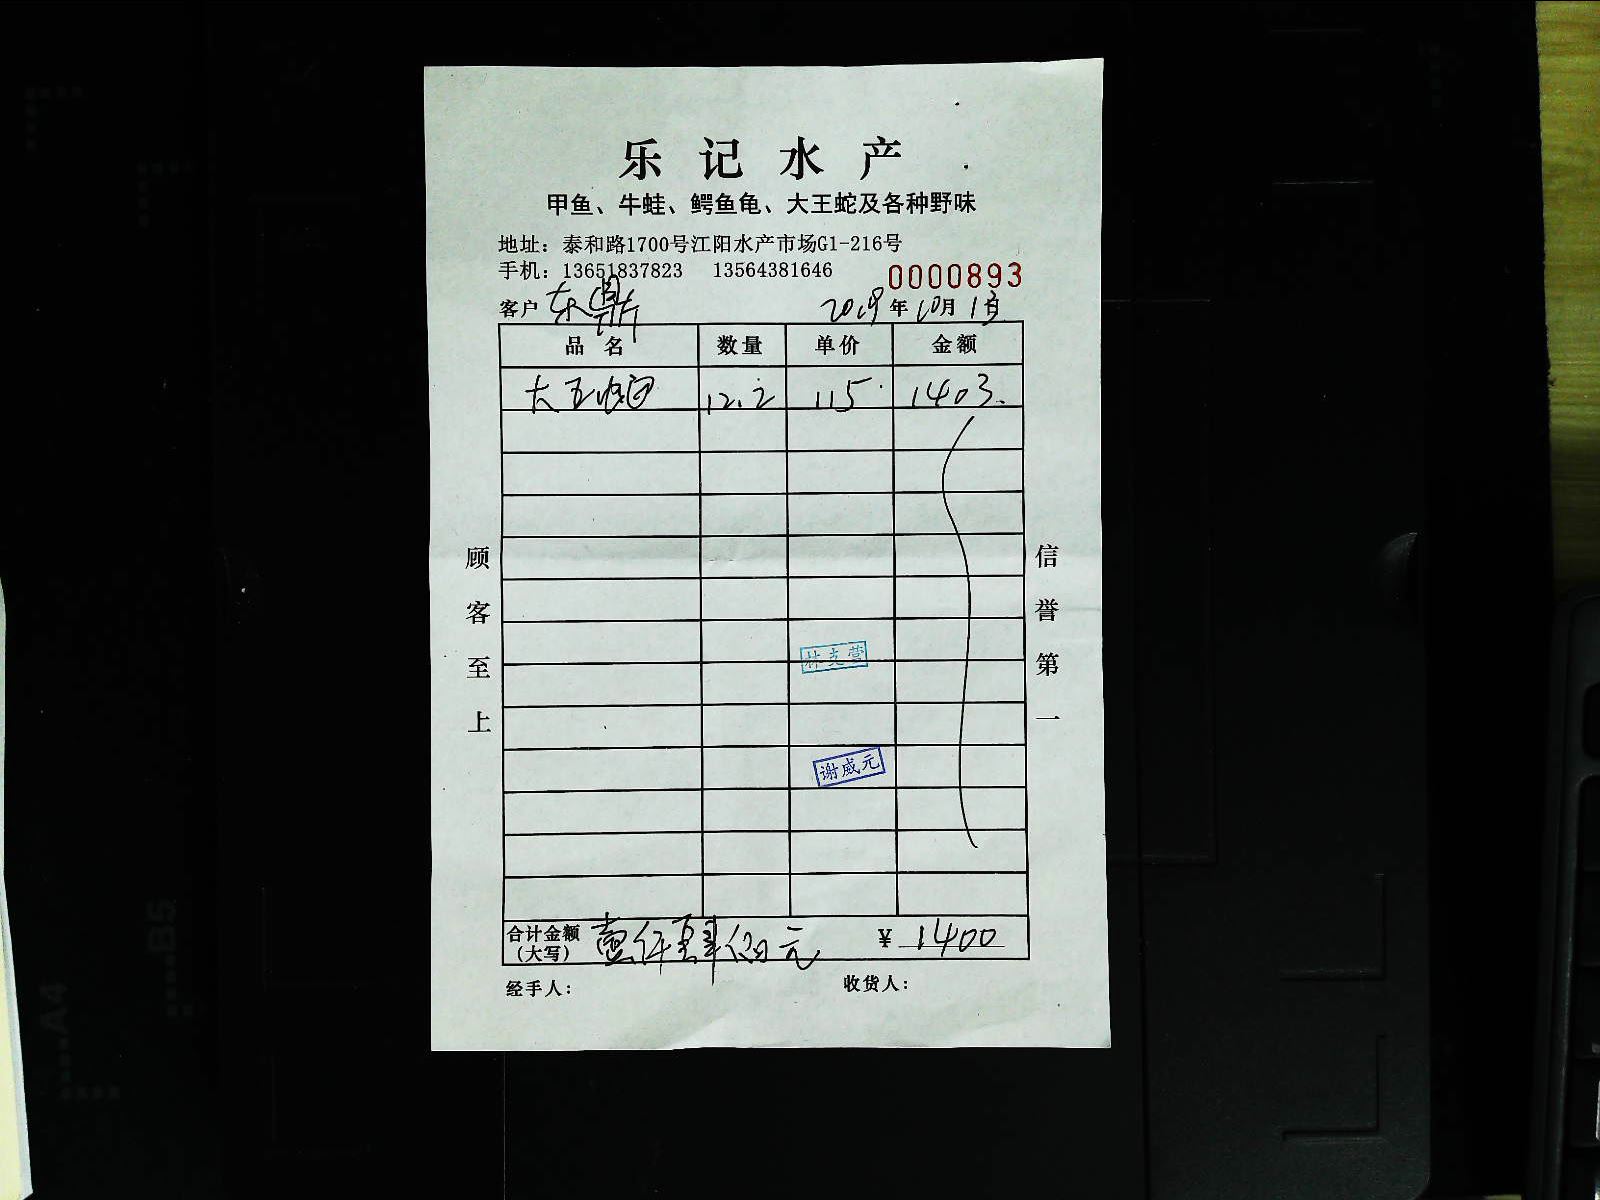 乐记水产
甲鱼、牛蛙、鳄鱼龟、大王蛇及各种野味
地址：泰和路1700号江阳水产市场G1-216号
手机：13651837823 13564381646
0000893
客户 东鼎 2019年10月1日
品名 数量 单价 金额
大王 12.2 115 1403
顾客至上
信誉第一
林克营
谢威元
合计金额（大写） 壹仟肆佰元 ¥ 1400
经手人： 收货人：
B5
A4